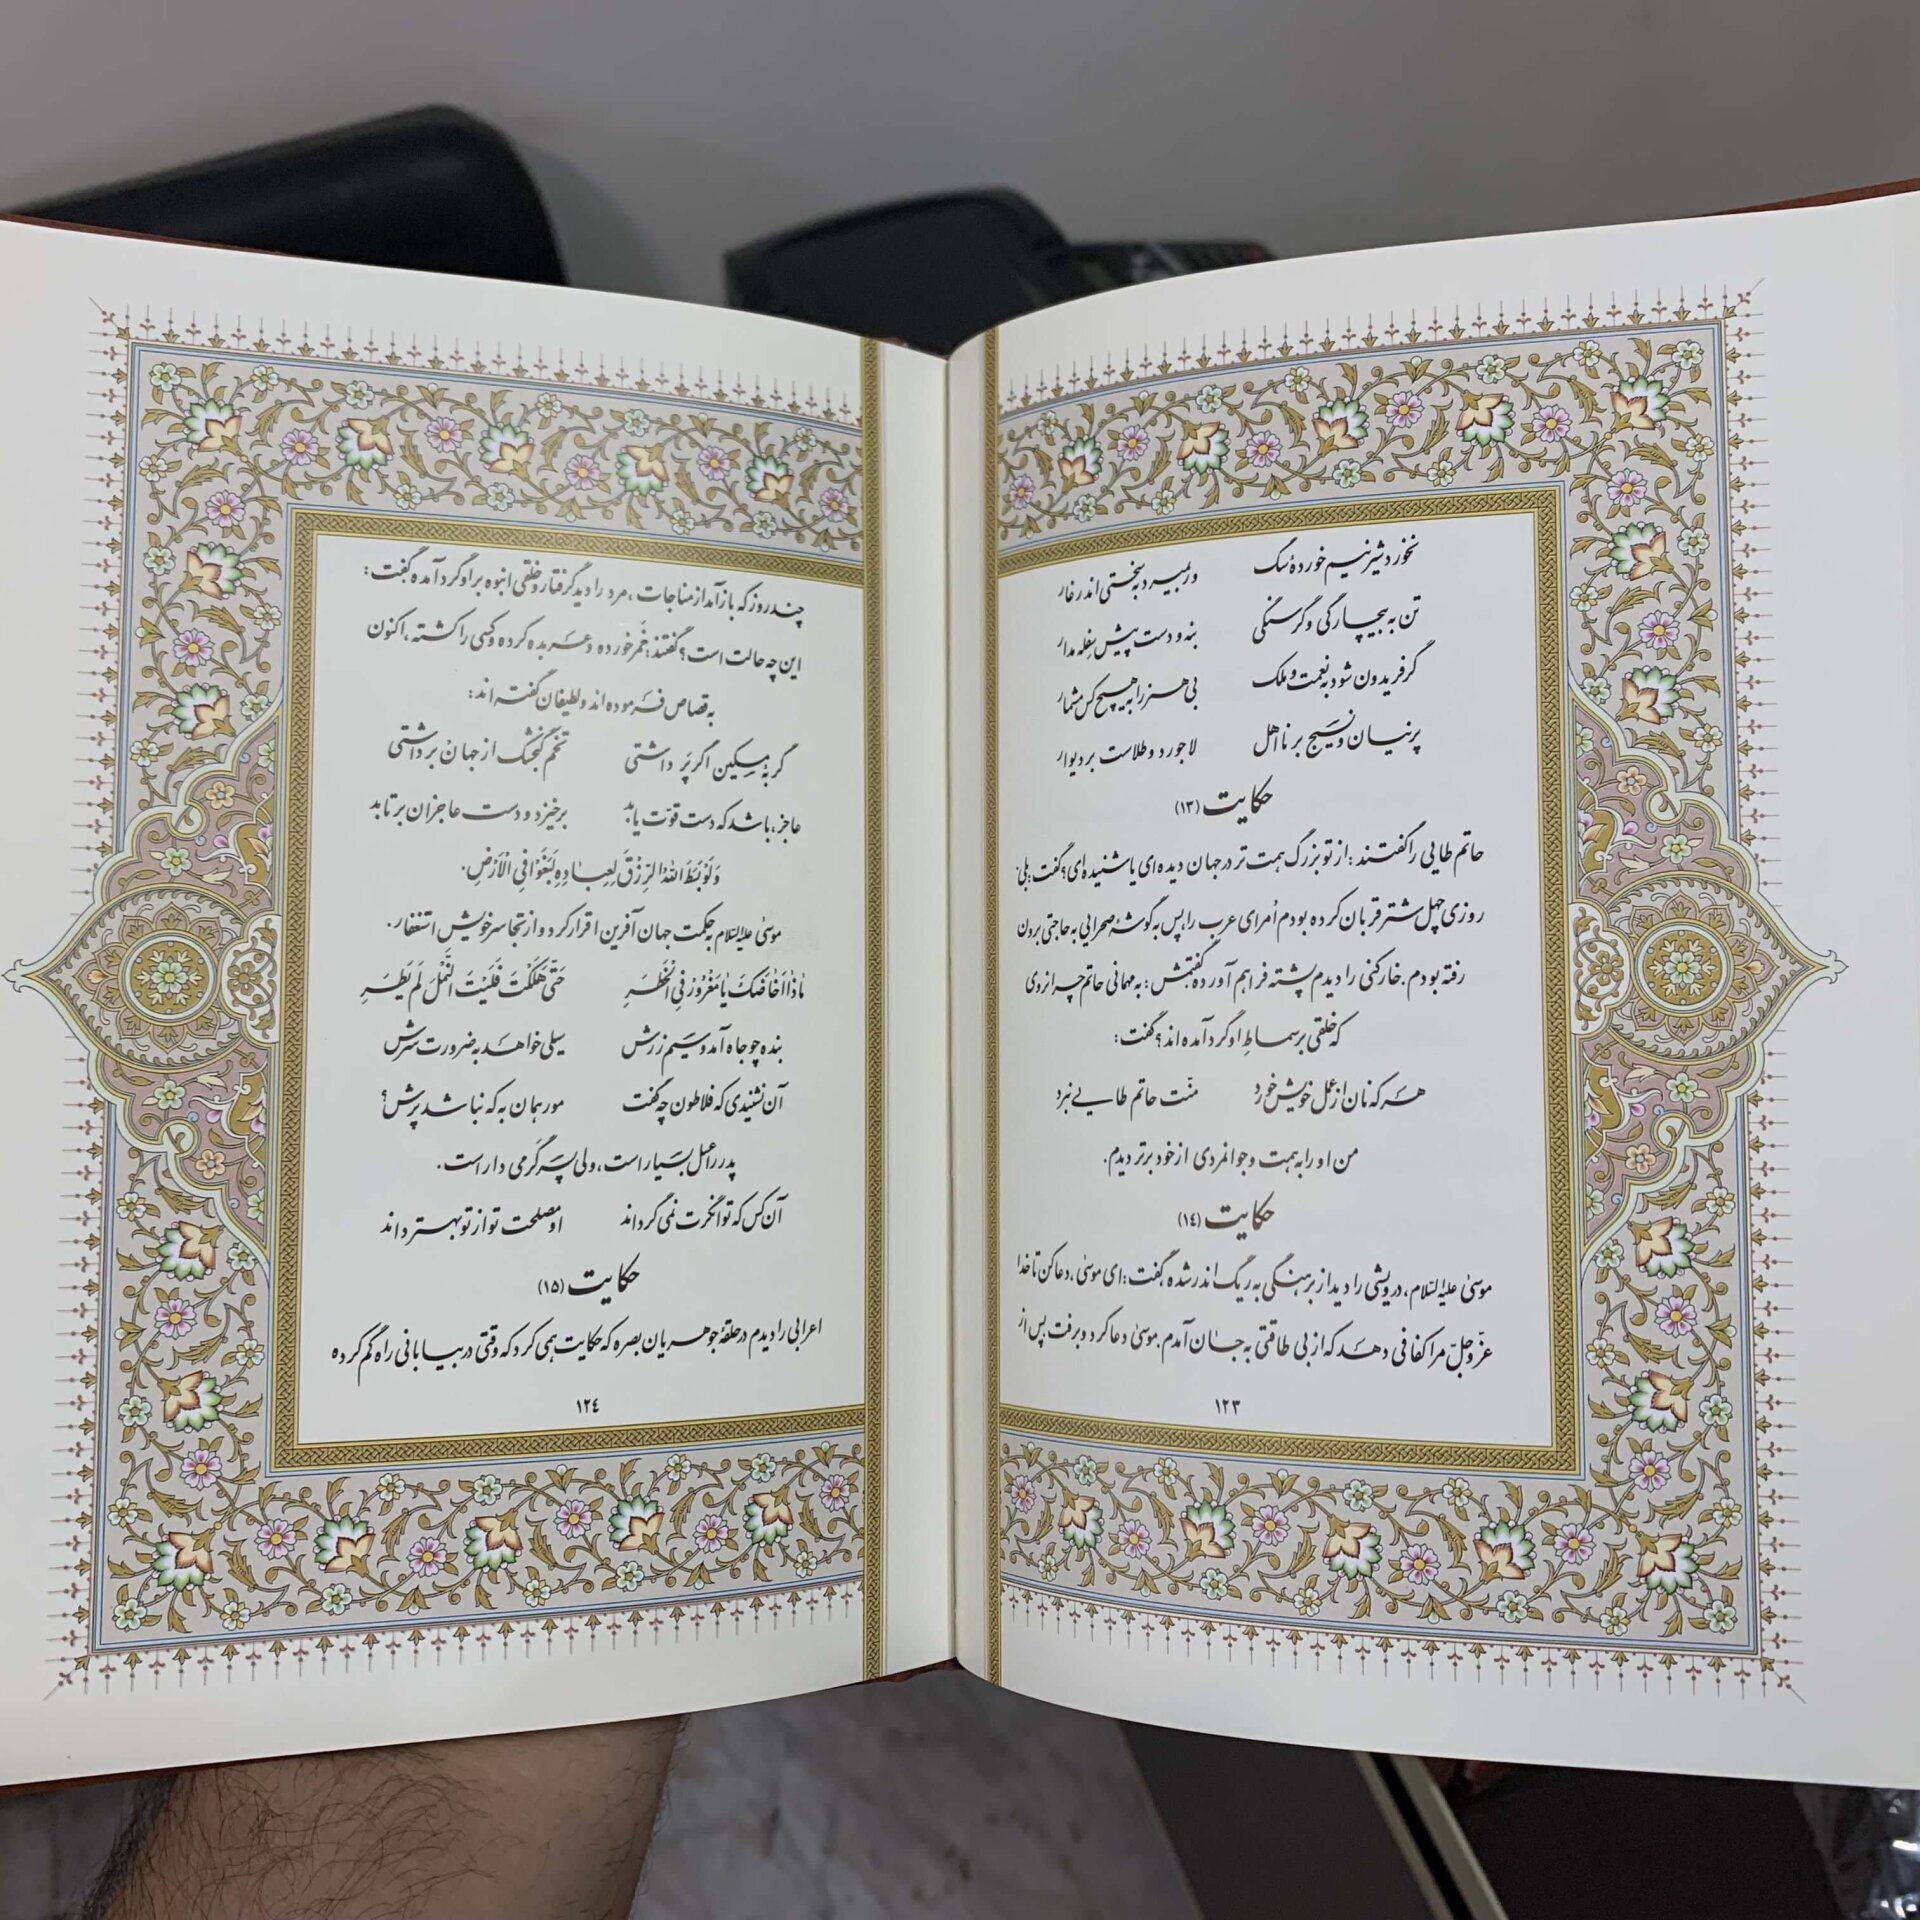 نخورد شیر نیم خوردهٔ سگ ور بمیرد به سختی اندر غار
تن به بیچارگی و گرسنگی بنه و دست پیش سفله مدار
گر فریدون شود به نعمت و ملک بی هنر را به هیچ کس مشمار
پرنیان و نسیج بر نااهل لاجورد و طلاست بر دیوار
حکایت (۱۳)
حاتم طایی را گفتند: از تو بزرگ همت تر در جهان دیده ای یا شنیده ای؟ گفت: بلی.
روزی چهل شتر قربان کرده بودم اُمرای عرب را پس به گوشهٔ صحرایی به حاجتی برون
رفته بودم. خارکنی را دیدم پشته فراهم آورده گفتمش: به مهمانی حاتم چرا نروی
که خلقی بر سماطِ او گرد آمده اند؟ گفت:
هر که نان از عمل خویش خورد منّت حاتم طایی نبرد
من او را به همت و جوانمردی از خود برتر دیدم.
حکایت (۱٤)
موسیٰ علیه السّلام، درویشی را دید از برهنگی به ریگ اندر شده گفت: ای موسیٰ، دعا کن تا خدا
عزّ وجلّ مرا کفافی دهد که از بی طاقتی به جان آمدم. موسیٰ دعا کرد و برفت پس از
۱۲۳
چند روز که باز آمد از مناجات، مرد را دید گرفتار و خلقی انبوه بر او گرد آمده گفت:
این چه حالت است؟ گفتند: خَمْر خورده و عربده کرده و کسی را کشته، اکنون
به قصاص فرموده اند و لطیفان گفته اند:
گربهٔ مسکین اگر پَر داشتی تخم گنجشک از جهان برداشتی
عاجز، باشد که دست قوّت یابد برخیزد و دست عاجزان برتابد
وَلَوْ بَسَطَ اللهُ الرِّزْقَ لِعِبادِهِ لَبَغَوْا فِي الْاَرْضِ.
موسیٰ علیه السّلام به حکمت جهان آفرین اقرار کرد و از تجاسر خویش استغفار.
مٰاذٰا اَخٰاضَكَ يٰا مَغْرُورُ فِي الْخَطَرِ حَتّىٰ هَلَكْتَ فَلَيْتَ النَّمْلَ لَمْ يَطِرِ
بنده چو جاه آمد و سیم و زرش سیلی خواهد به ضرورت سرش
آن نشنیدی که فلاطون چه گفت مور همان به که نباشد پرش؟
پدر را عسل بسیار است، ولی پسر گرمی دار است.
آن کس که توانگرت نمی گرداند او مصلحت تو از تو بهتر داند
حکایت (۱۵)
اعرابی را دیدم در حلقهٔ جوهریان بصره که حکایت همی کرد که وقتی در بیابانی راه گم کرده
۱۲٤